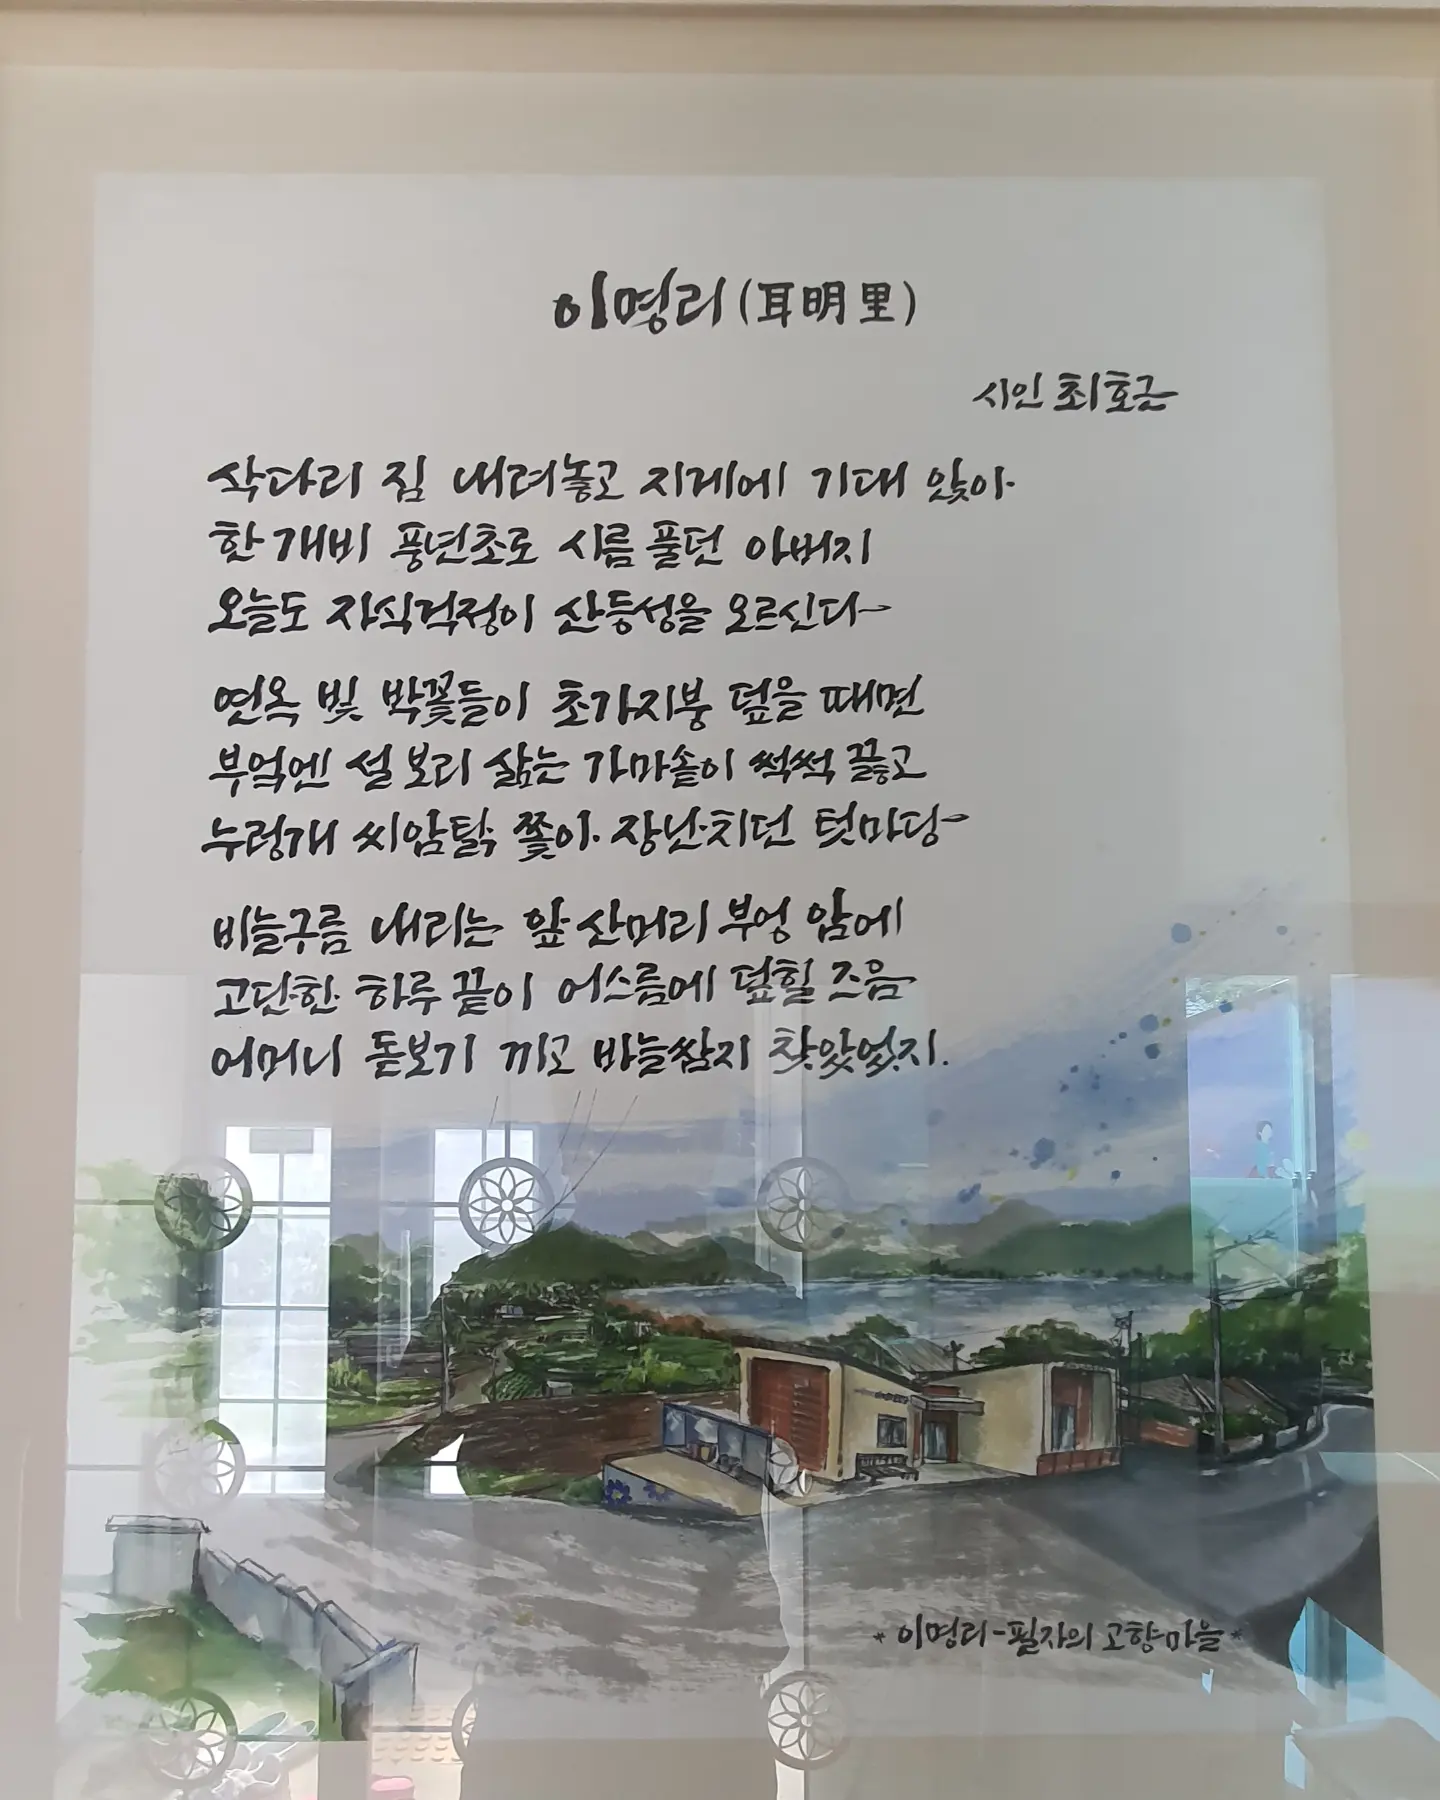 이명리(耳明里)
시인 최호근
삭다리 짐 내려놓고 지게에 기대 앉아
한 개비 풍년초로 시름 풀던 아버지
오늘도 자식걱정이 산등성을 오르신다
연옥 빛 박꽃들이 초가지붕 덮을 때면
부엌엔 설 보리 삶는 가마솥이 썩썩 끓고
누렁개 씨암탉 쫓아 장난치던 텃마당
비늘구름 내리는 앞 산머리 부엉 암에
고단한 하루 끝이 어스름에 덮힐 즈음
어머니 돋보기 끼고 바늘쌈지 찾았었지.
* 이명리-필자의 고향마을 *